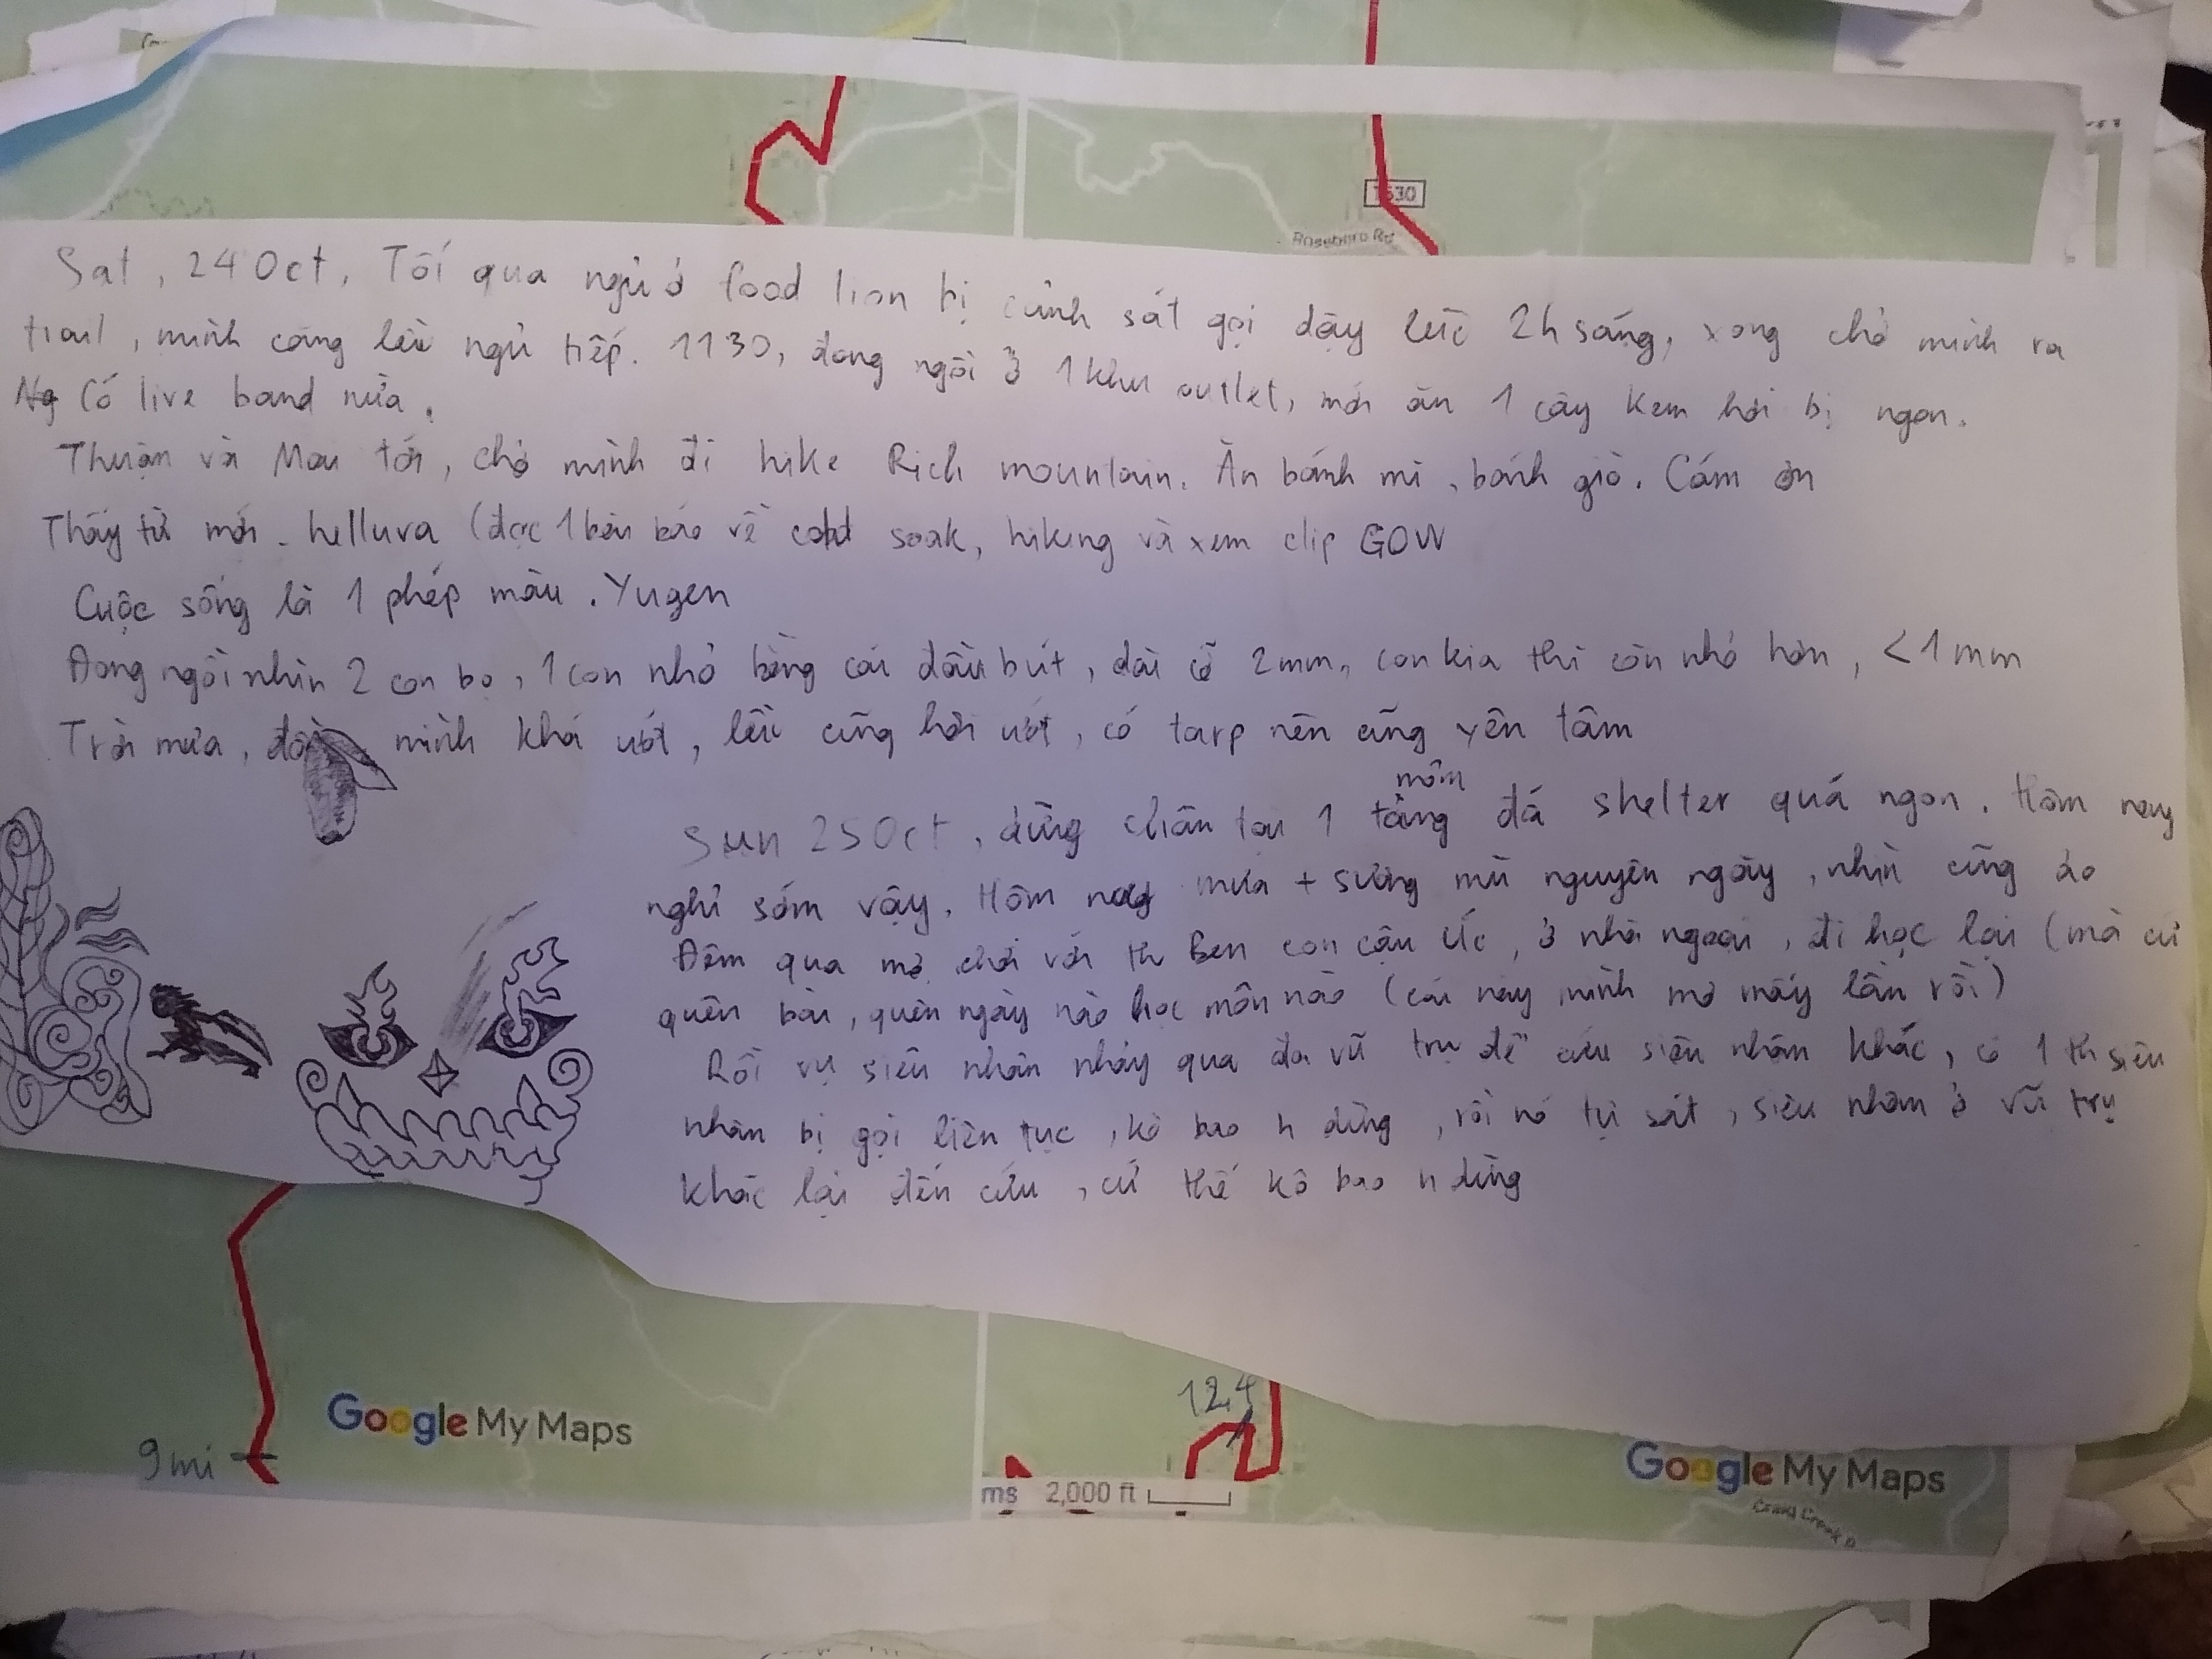 1530
Roseboro Rd
Sat, 24 Oct, Tối qua ngủ ở food lion bị cảnh sát gọi dậy lúc 2h sáng, xong chở mình ra
trail, mình căng lều ngủ tiếp. 1130, đang ngồi ở 1 khu outlet, mới ăn 1 cây kem hơi bị ngon.
Có live band nữa.
Thuận và Mai tới, chở mình đi hike Rich mountain. Ăn bánh mì, bánh giò. Cám ơn
Thấy từ mới - helluva (đọc 1 bài báo về cold soak, hiking và xem clip GOW
Cuộc sống là 1 phép màu. Yugen
Đang ngồi nhìn 2 con bọ, 1 con nhỏ bằng cái đầu bút, dài cỡ 2mm, con kia thì còn nhỏ hơn, <1mm
Trời mưa, mình khá ướt, lều cũng hơi ướt, có tarp nên cũng yên tâm
mỏm
Sun 25 Oct, dừng chân tại 1 tảng đá shelter quá ngon. Hôm nay
nghỉ sớm vậy. Hôm nay mưa + sương mù nguyên ngày, nhìn cũng ảo
Đêm qua mơ chơi với th Ben con cậu Úc, ở nhà ngoại, đi học lại (mà cứ
quên bài, quên ngày nào học môn nào (cái này mình mơ mấy lần rồi)
Rồi vụ siêu nhân nhảy qua đa vũ trụ để cứu siêu nhân khác, có 1 th siêu
nhân bị gọi liên tục, kô bao h dừng, rồi nó tự sát, siêu nhân ở vũ trụ
khác lại đến cứu, cứ thế kô bao h dừng
12,4
Google My Maps
9mi
ms 2,000 ft
Google My Maps
Craig Creek